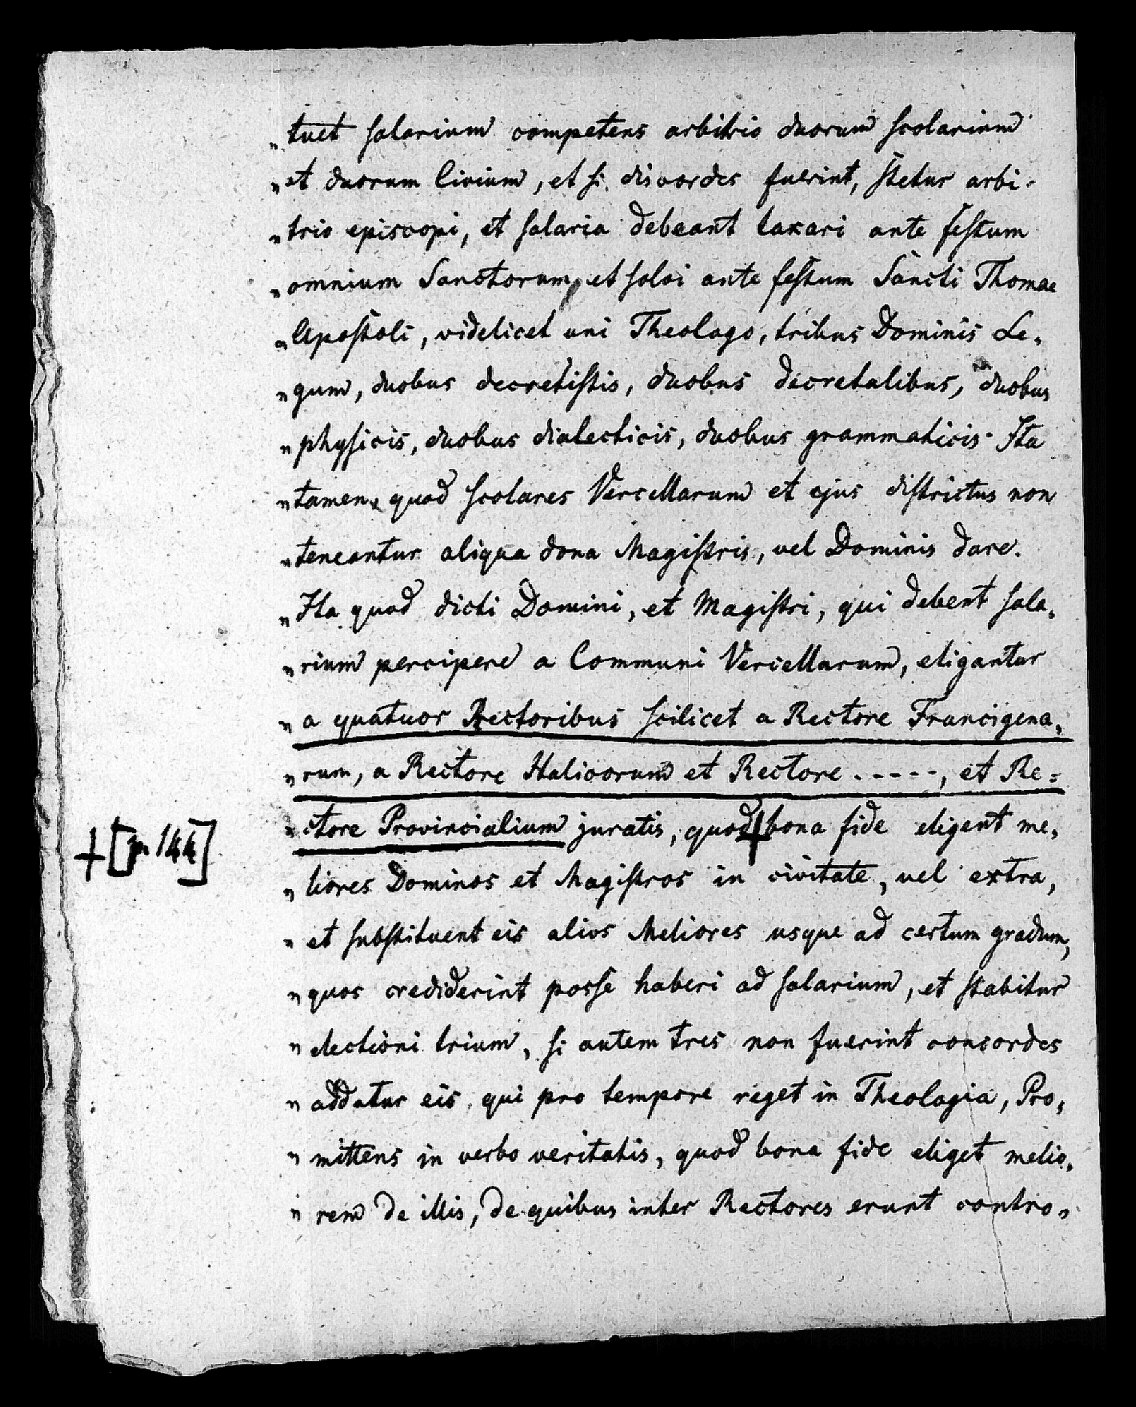 „tuet salarium competens arbitrio duorum scolarium
„et duorum Civium, et si discordes fuerint, stetur arbi-
„trio episcopi, et salaria debeant taxari ante festum
„omnium Sanctorum, et solvi ante festum Sancti Thomae
„Apostoli, videlicet uni Theologo, tribus Dominis Le-
„gum, duobus decretistis, duobus decretalibus, duobus
„physicis, duobus dialecticis, duobus grammaticis. Ita
„tamen, quod scolares Vercellarum et ejus districtus non
„teneantur aliqua dona Magistris, vel Dominis dare.
„Ita quod dicti Domini, et Magistri, qui debent sala-
„rium percipere a Communi Vercellarum, eligantur
„a quatuor Rectoribus scilicet a Rectore Francigena-
„rum, a Rectore Italicorum et Rectore -----, et Re-
„ctore Provincialium juratis, quod + bona fide eligent me-
+ [p 144]
„liores Dominos et Magistros in civitate, vel extra,
„et substituent eis alios Meliores usque ad certum gradum,
„quos crediderint posse haberi ad salarium, et stabitur
„electioni trium, si autem tres non fuerint concordes
„addatur eis, qui pro tempore reget in Theologia, Pro-
„mittens in verbo veritatis, quod bona fide eliget melio-
„rem de illis, de quibus inter Rectores erunt contro-